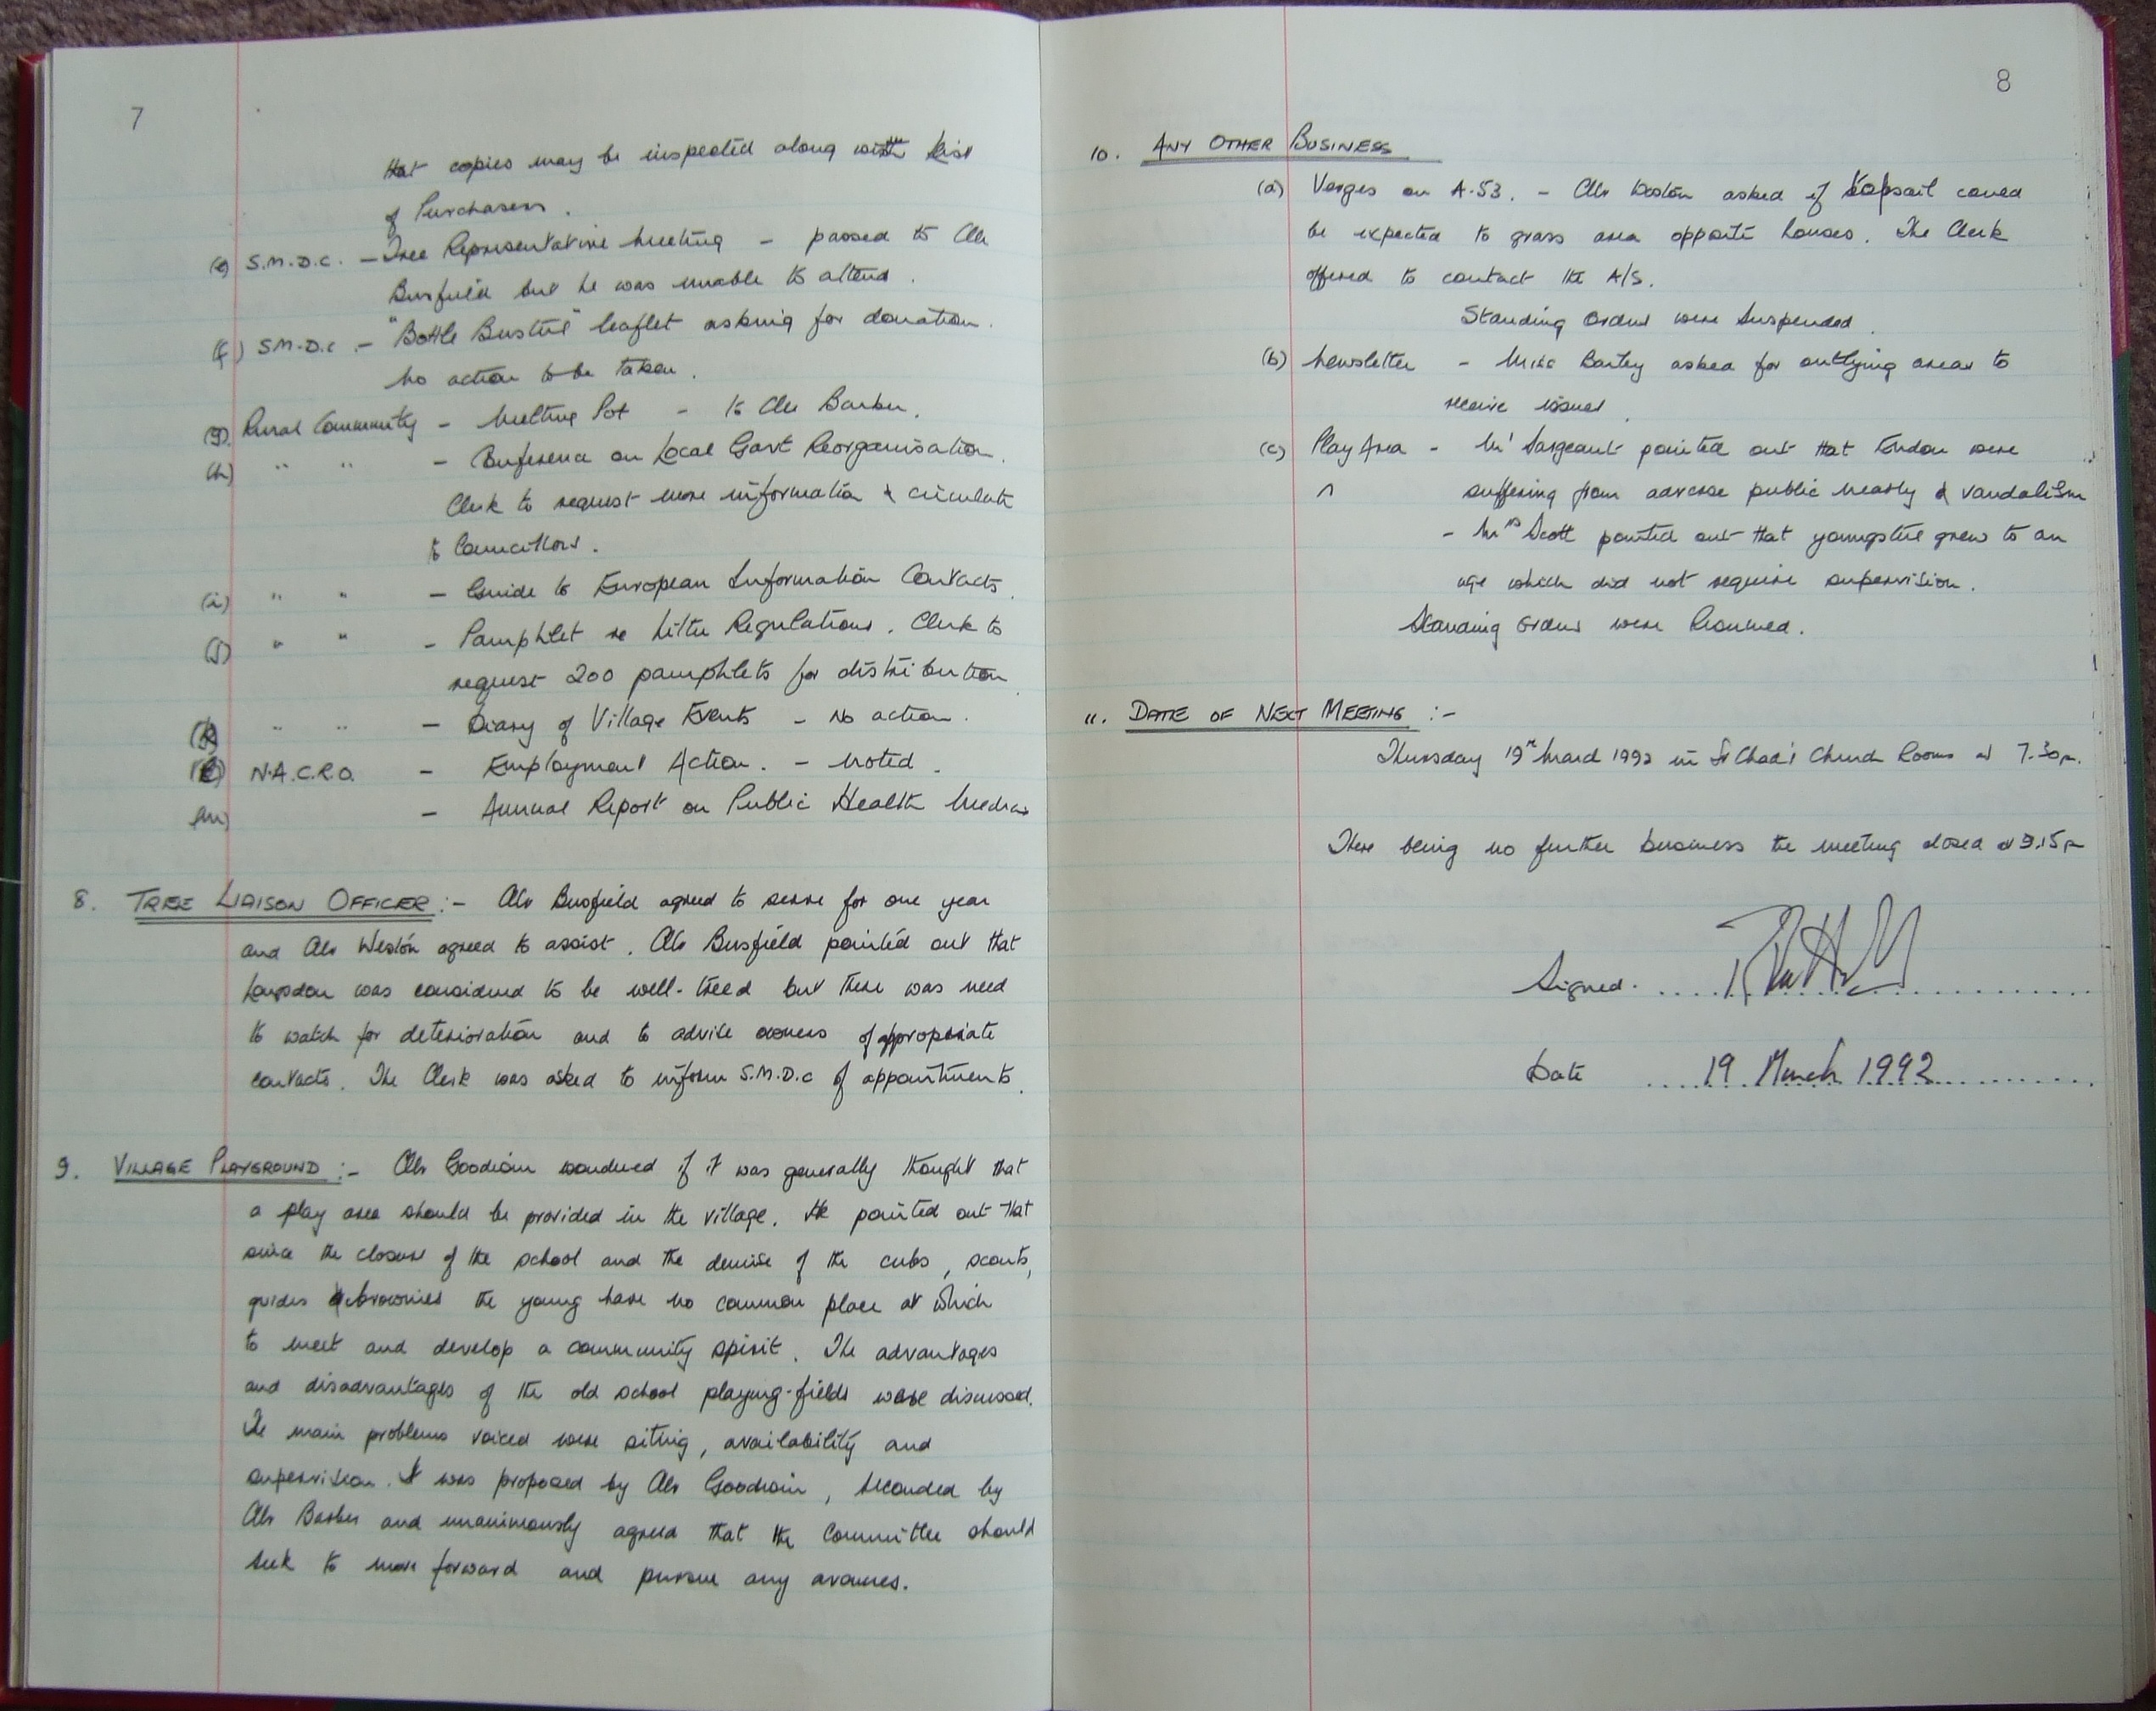 7
that copies may be inspected along with list
of Purchasers.
(e) S.M.D.C. - Tree Representative Meeting - passed to Cllr
Busfield but he was unable to attend.
(f) S.M.D.C. - "Bottle Busters" leaflet asking for donation.
No action to be taken.
(g) Rural Community - Melting Pot - to Cllr Barber.
(h) " " - Conference on Local Govt Reorganisation.
Clerk to request more information & circulate
to Councillors.
(i) " " - Guide to European Information Contacts.
(j) " " - Pamphlet re Litter Regulations. Clerk to
request 200 pamphlets for distribution.
(k) " " - Diary of Village Events - No action.
(l) N.A.C.R.O. - Employment Action. - Noted.
(m) - Annual Report on Public Health
8. TREE LIAISON OFFICER :- Cllr Busfield agreed to serve for one year
and Cllr Weston agreed to assist. Cllr Busfield pointed out that
Longsdon was considered to be well-treed but there was need
to watch for deterioration and to advise owners of appropriate
contacts. The Clerk was asked to inform S.M.D.C of appointments.
9. VILLAGE PLAYGROUND :- Cllr Goodwin wondered if it was generally thought that
a play area should be provided in the village. He pointed out that
since the closure of the school and the demise of the cubs, scouts,
guides & brownies the young have no common place at which
to meet and develop a community spirit. The advantages
and disadvantages of the old school playing-fields were discussed.
The main problems voiced were siting, availability and
supervision. It was proposed by Cllr Goodwin, seconded by
Cllr Barber and unanimously agreed that the Committee should
seek to move forward and pursue any avenues.
8
10. ANY OTHER BUSINESS
(a) Verges on A.53. - Cllr Weston asked if topsoil could
be expected to grass area opposite houses. The Clerk
offered to contact the A/S.
Standing Orders were Suspended.
(b) Newsletter - Mike Bailey asked for outlying areas to
receive issues.
(c) Play Area - Mr Sargeant pointed out that Endon were
suffering from adverse public & vandalism
- Mrs Scott pointed out that youngsters grew to an
age which did not require supervision.
Standing Orders were Resumed.
11. DATE OF NEXT MEETING :-
Thursday 19th March 1992 in St Chad's Church Rooms at 7.30pm.
There being no further business the meeting closed at 9.15pm
Signed.
Date 19 March 1992